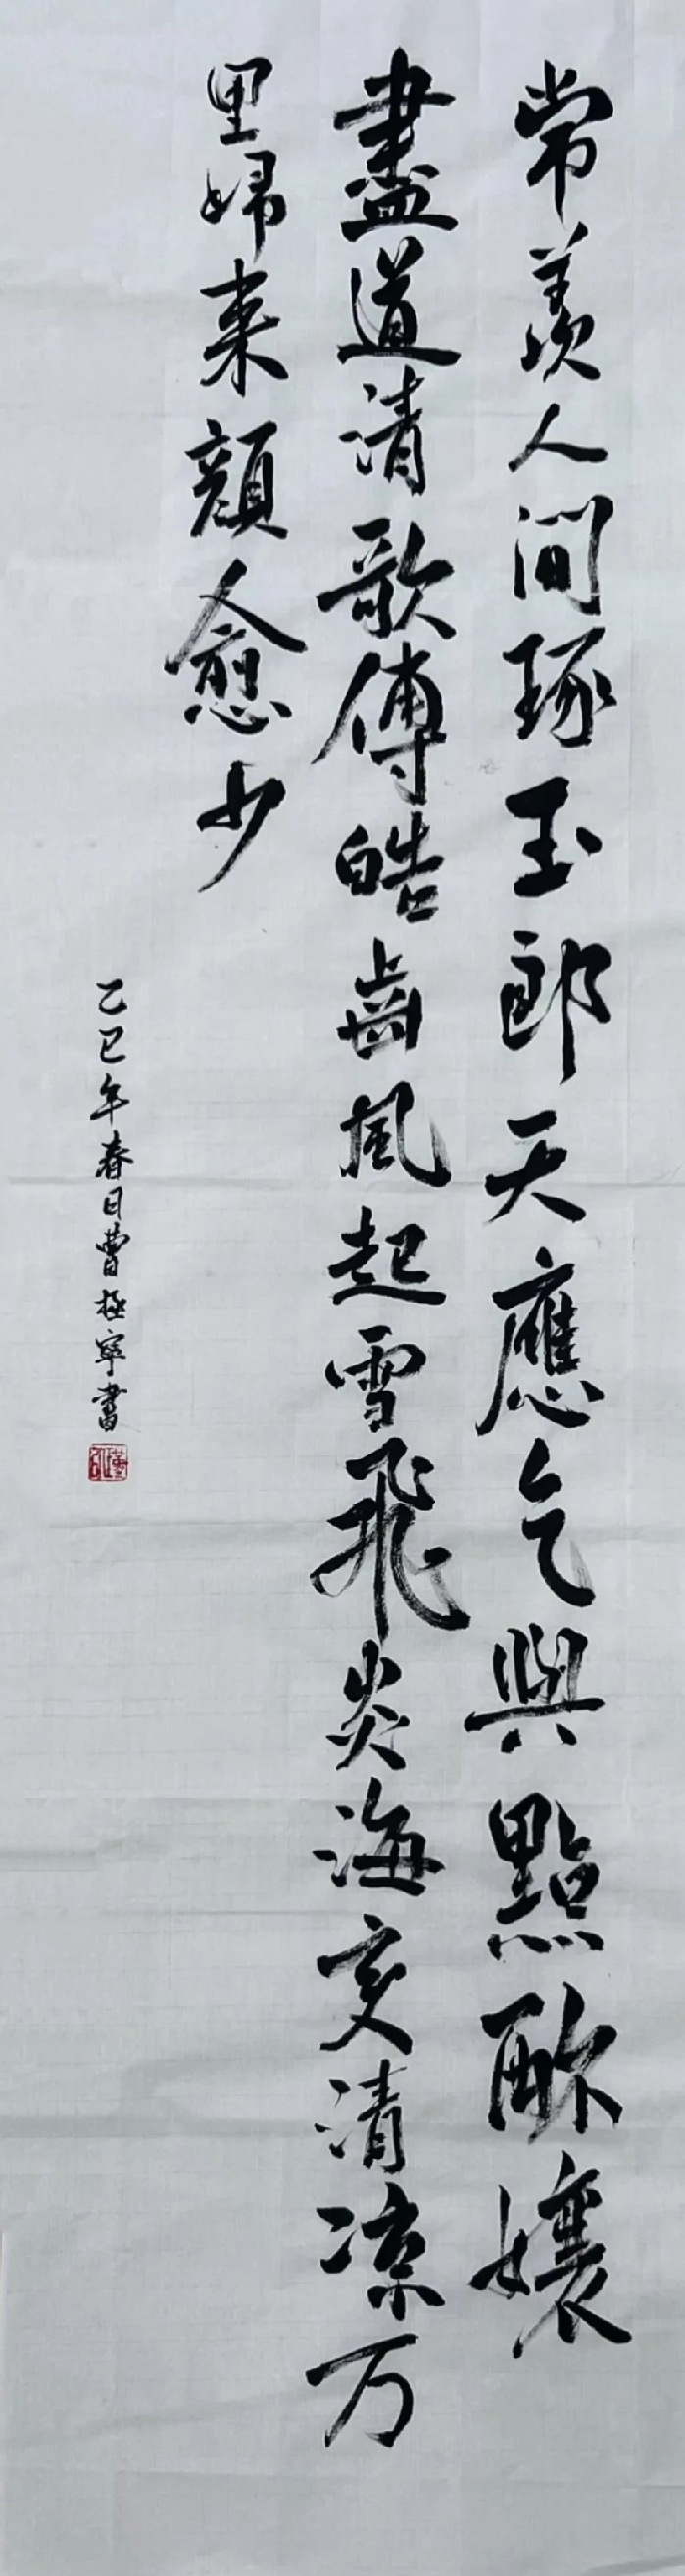 常羨人間琢玉郎天應乞與點酥孃
盡道清歌傳皓齒風起雪飛炎海变清凉万
里婦来顏愈少
乙巳年春日曹極寧書